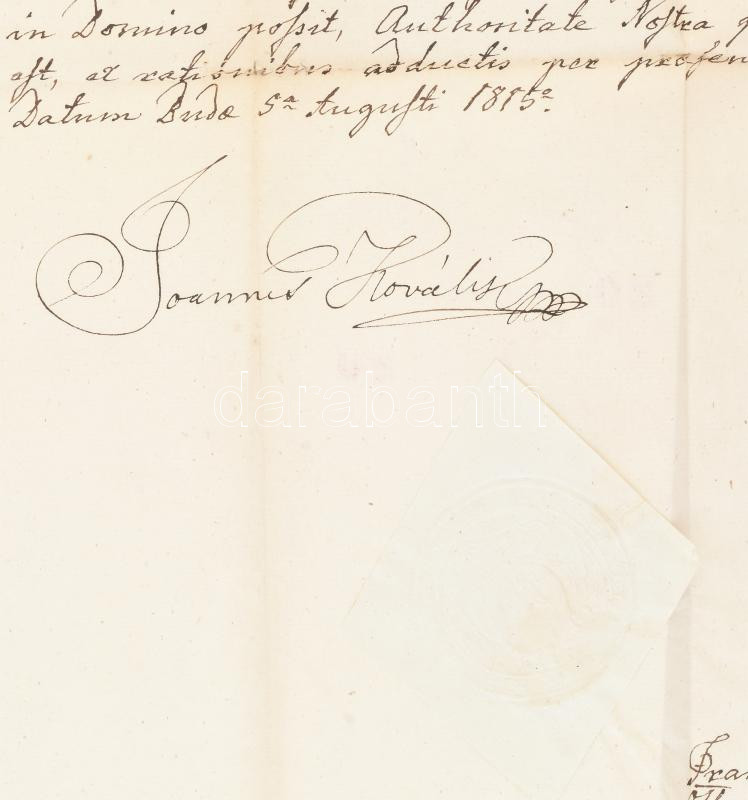 in Domino poſsit, Authoritate Noſtra
eſt, et rationibus adductis per præſen
Datum Budæ 5ª Auguſti 1815º.
Joannes Koválik
darabanth
Fran